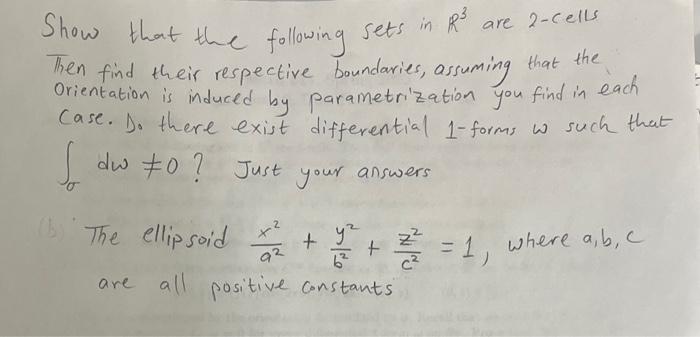 Show that the following sets in R³ are 2-cells
Then find their respective boundaries, assuming that the
Orientation is induced by parametrization you find in each
Case. Do there exist differential 1-forms w such that
∫_σ dw ≠ 0 ? Just your answers
(b) The ellipsoid x²/a² + y²/b² + z²/c² = 1, where a, b, c
are all positive constants